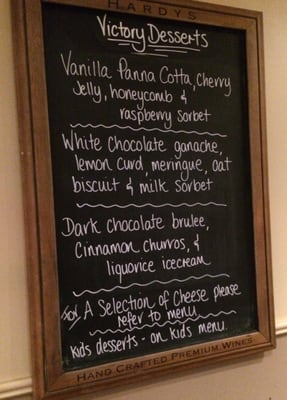 HARDYS
Victory Desserts
Vanilla Panna Cotta, cherry
Jelly, honeycomb &
raspberry sorbet
White chocolate ganache,
lemon curd, meringue, oat
biscuit & milk sorbet
Dark chocolate brulee,
Cinnamon churros, &
liquorice icecream
A Selection of Cheese please
refer to menu
kids desserts - on kids menu.
HAND CRAFTED PREMIUM WINES